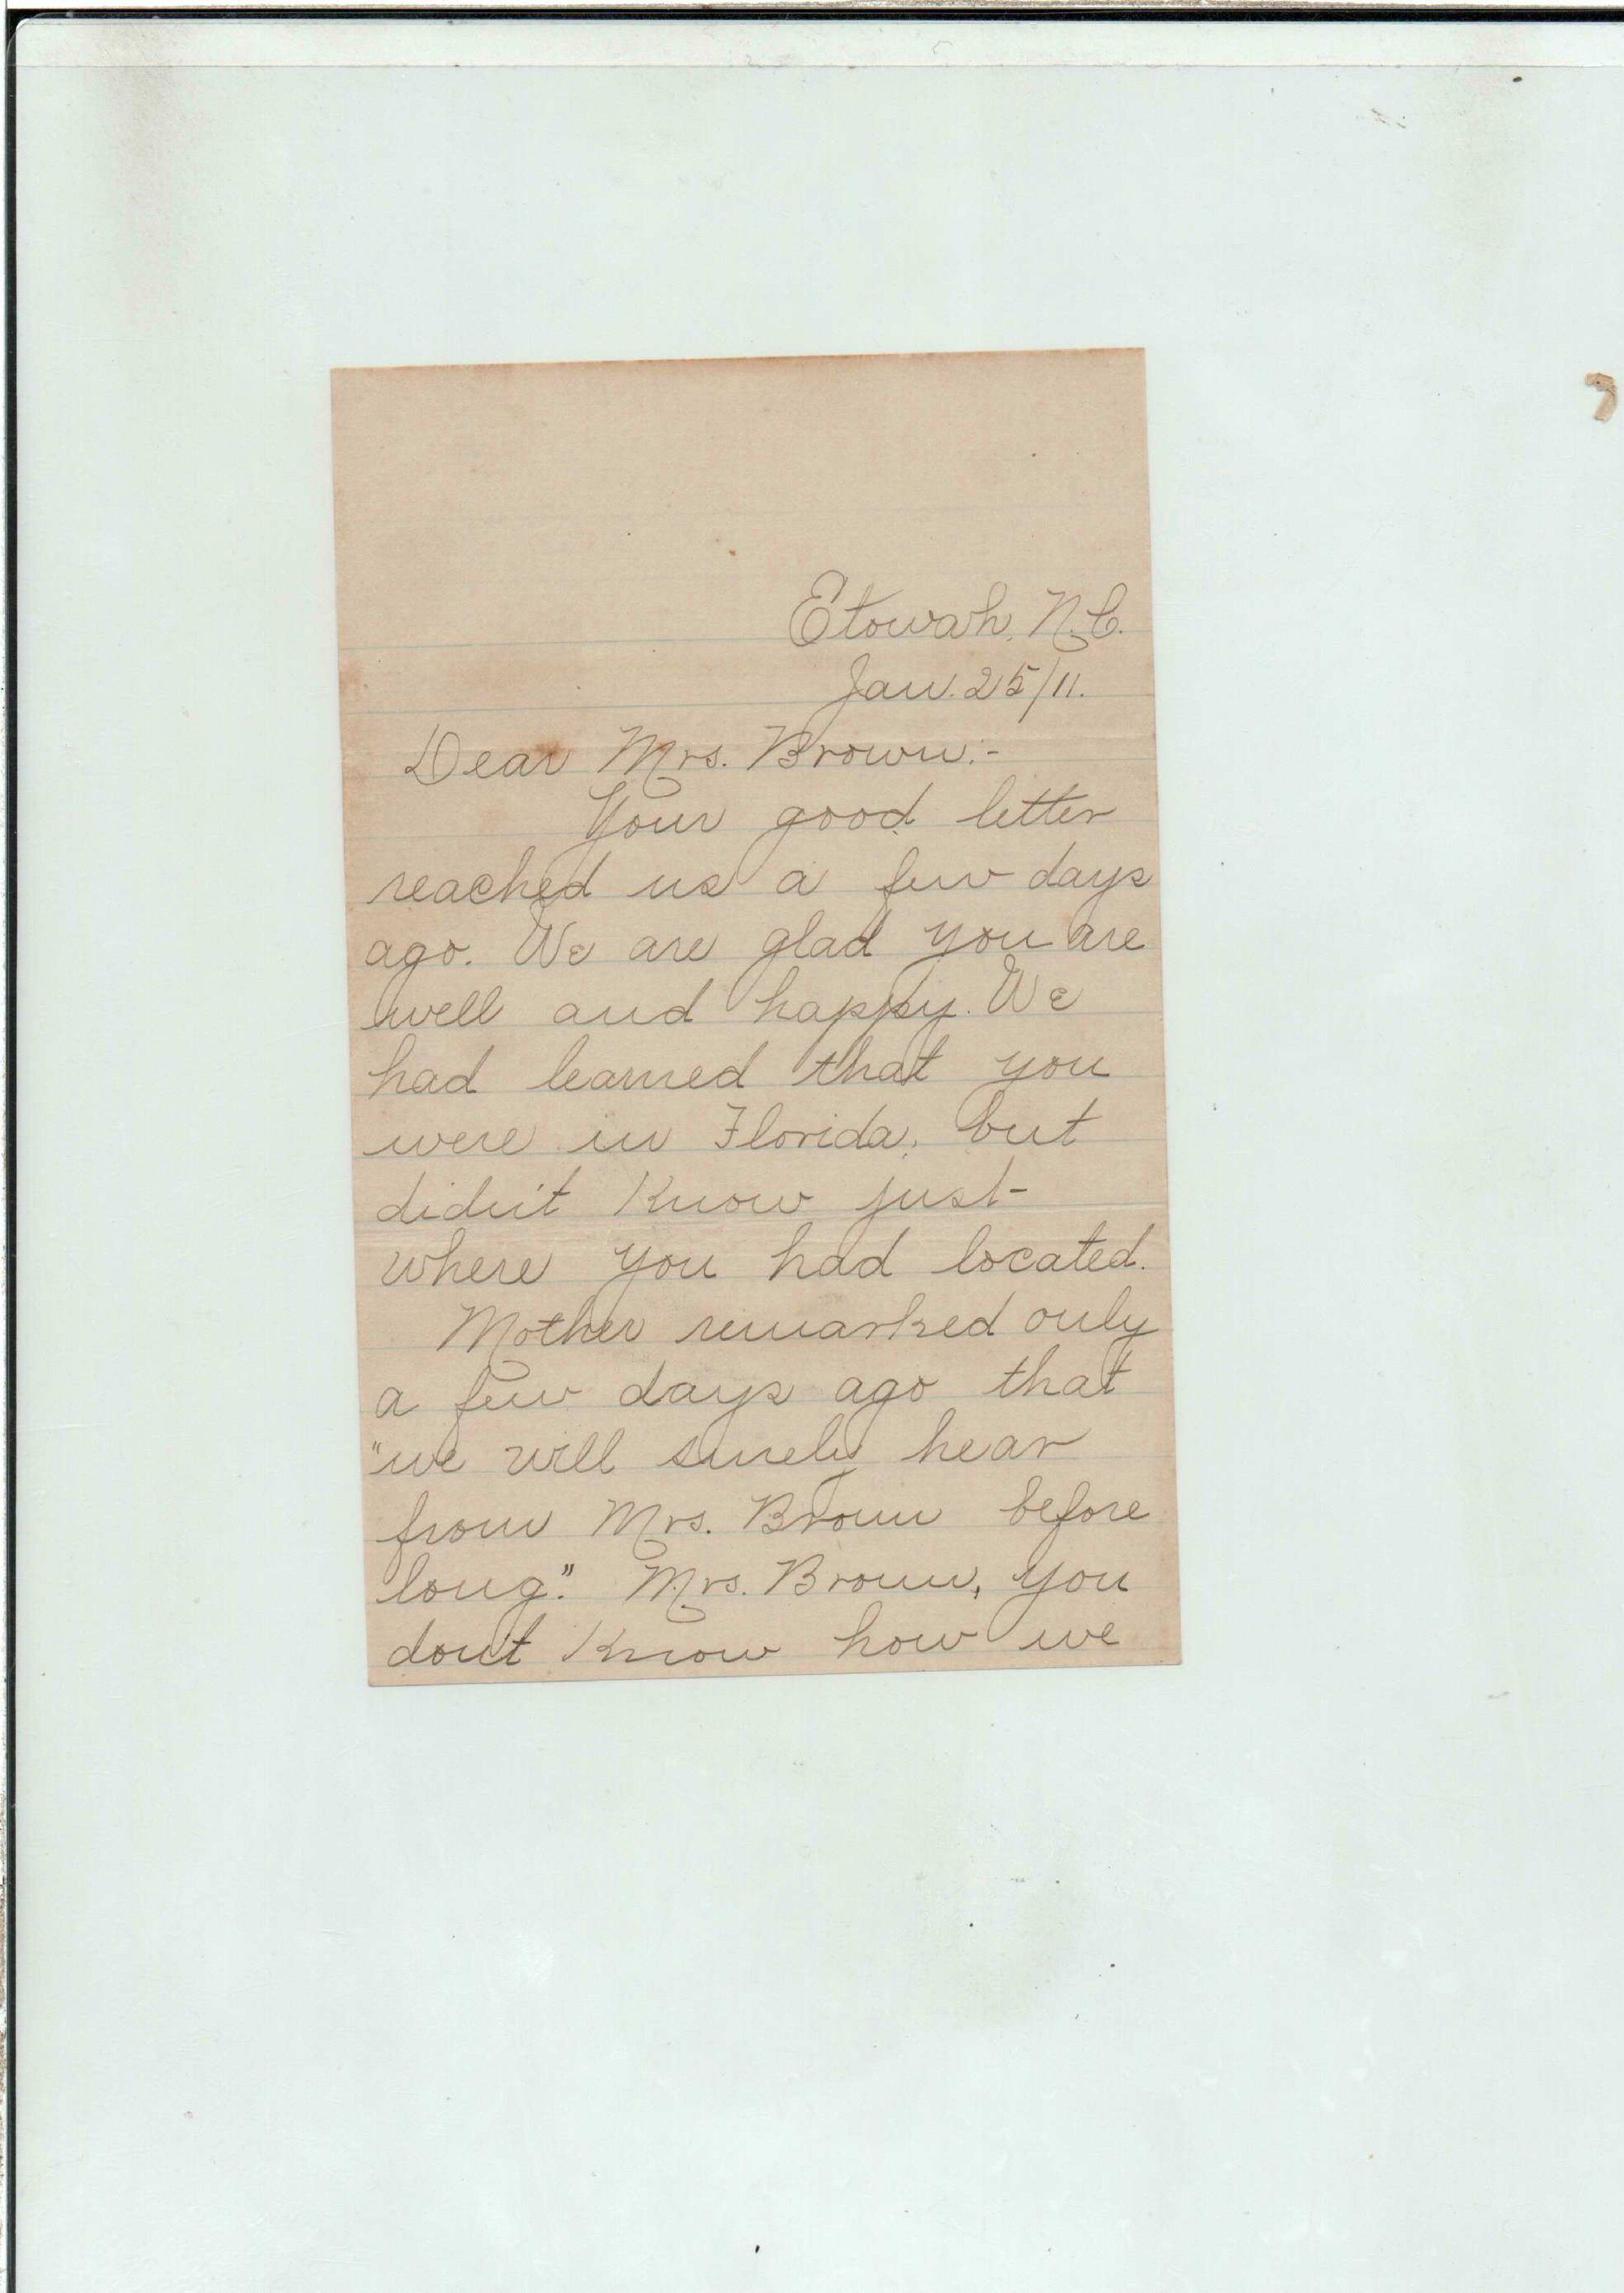 Etowah, N.C.
Jan. 25/11.
Dear Mrs. Brown:-
Your good letter
reached us a few days
ago. We are glad you are
well and happy. We
had learned that you
were in Florida, but
didn't know just
where you had located.
Mother remarked only
a few days ago that
"we will surely hear
from Mrs. Brown before
long." Mrs. Brown, you
don't know how we